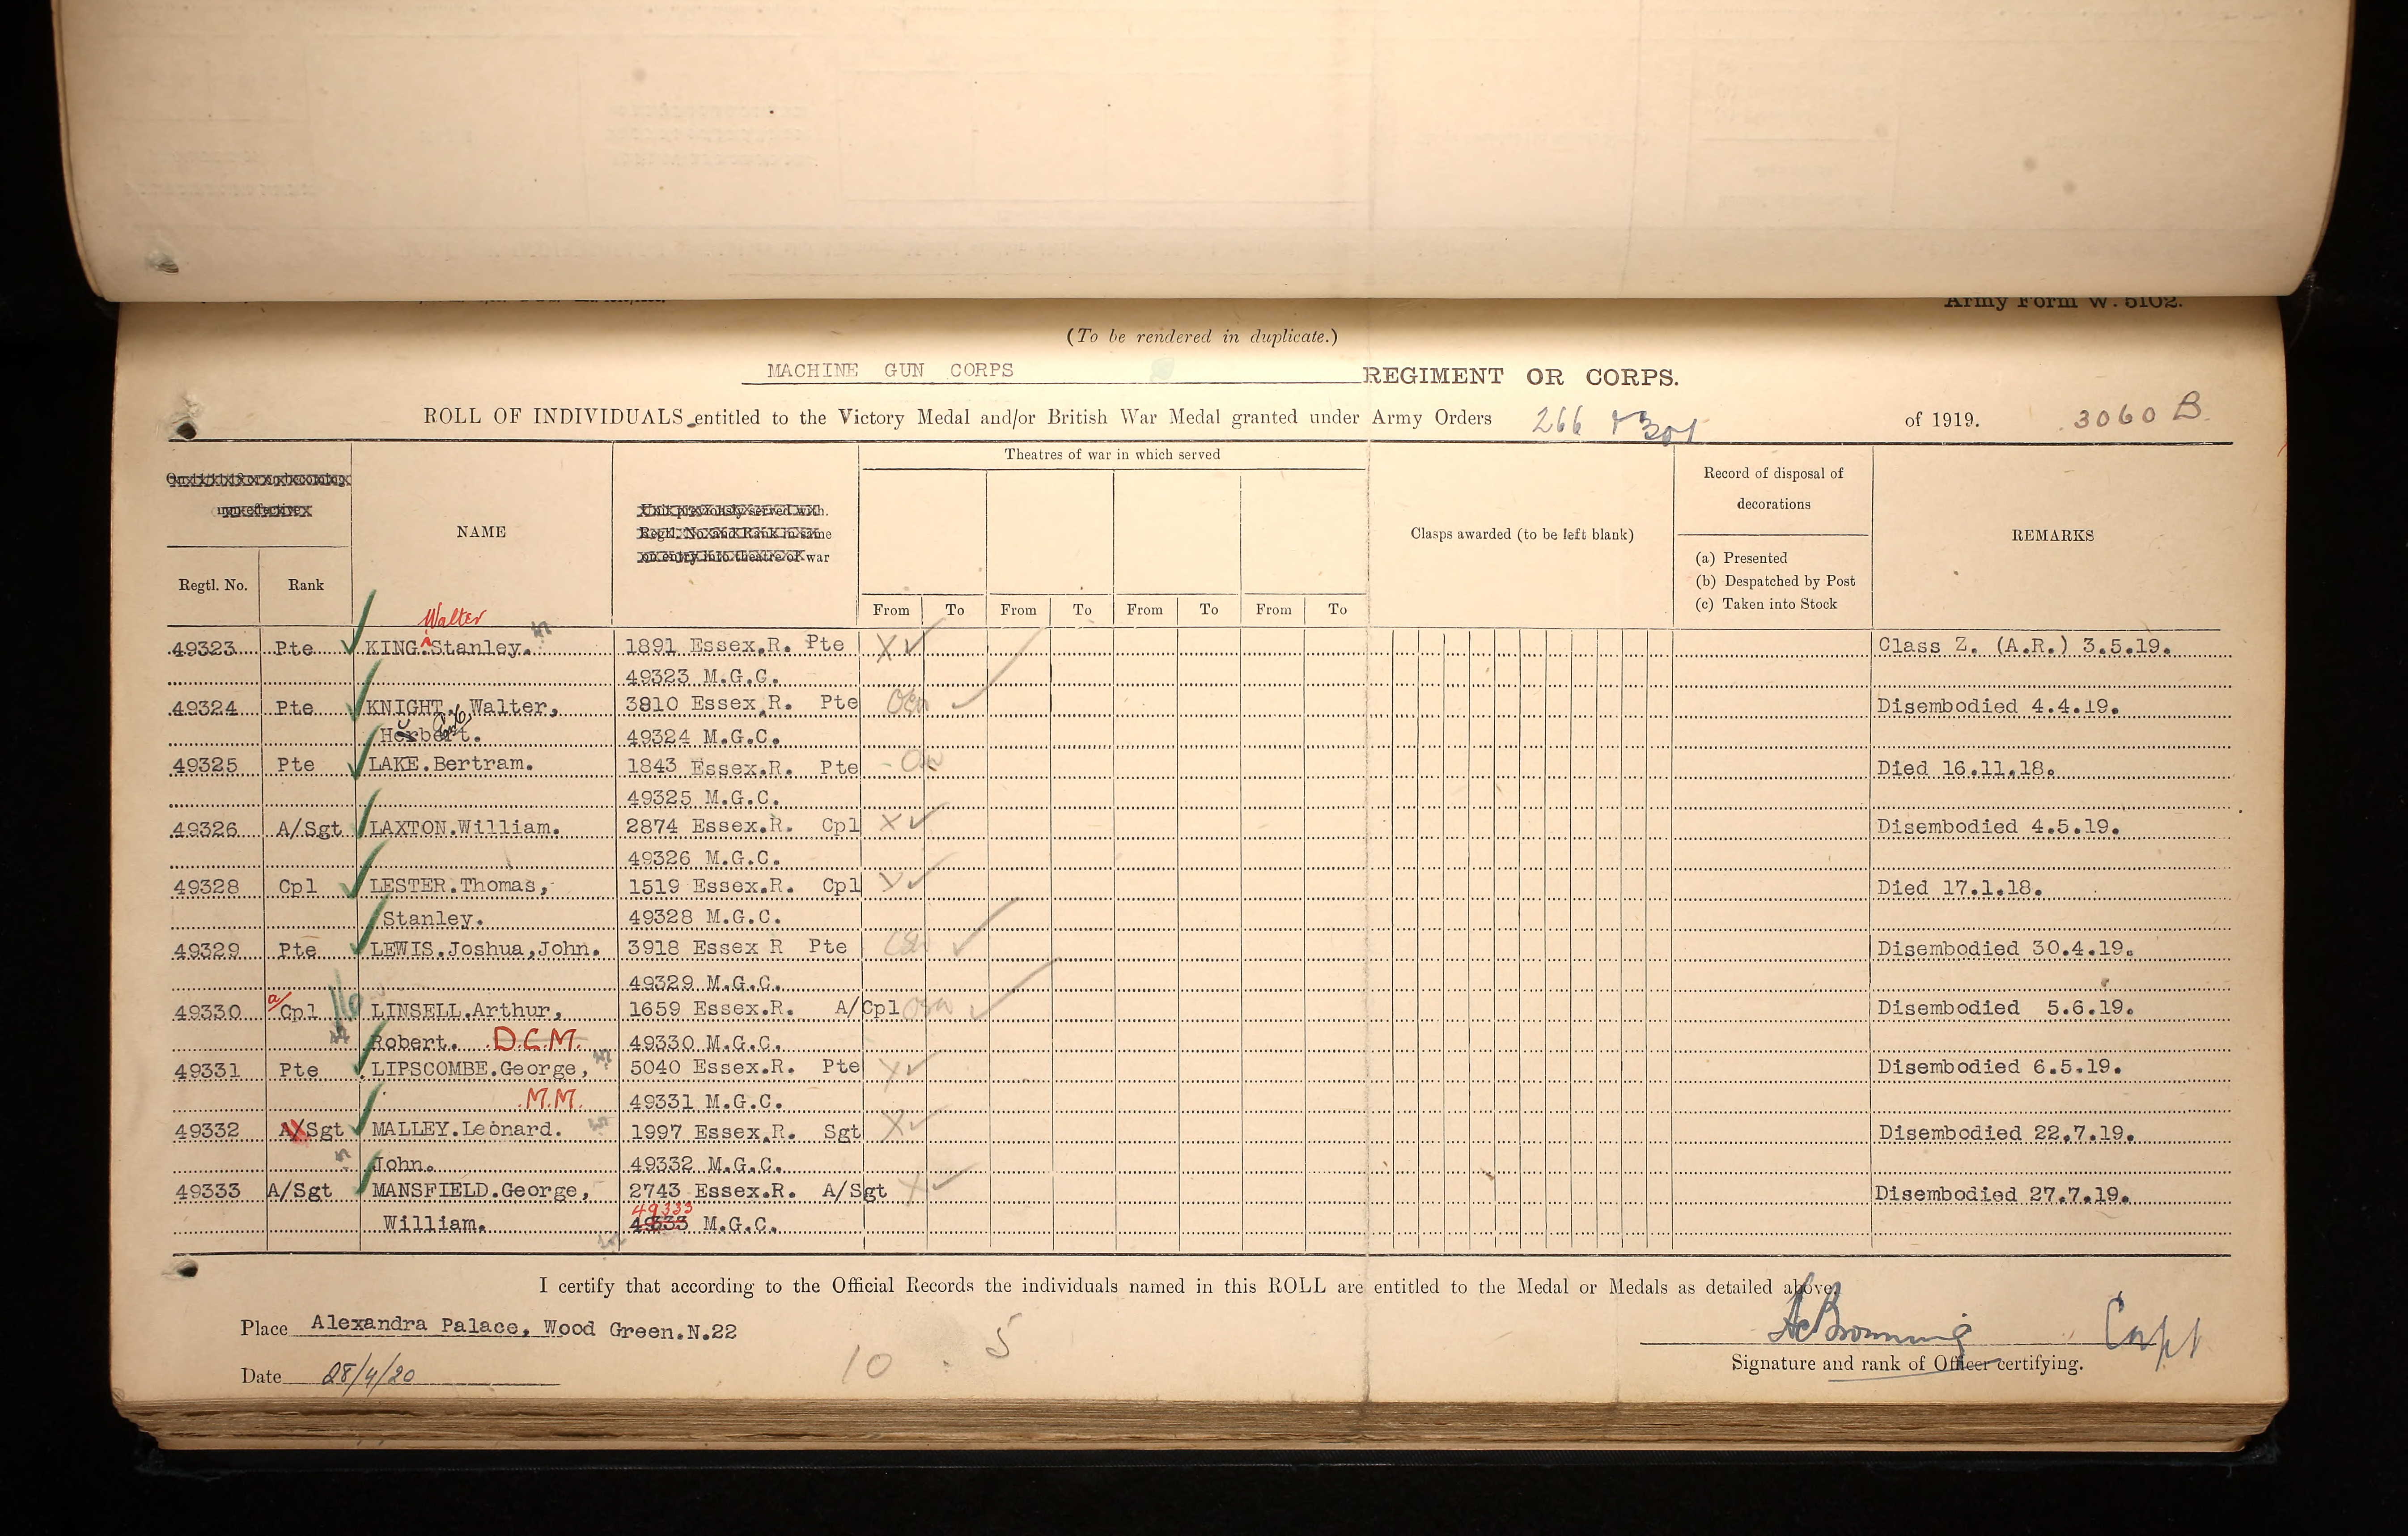 Army Form W. 5102.
(To be rendered in duplicate.)
MACHINE GUN CORPS REGIMENT OR CORPS.
ROLL OF INDIVIDUALS entitled to the Victory Medal and/or British War Medal granted under Army Orders 266 + 301 of 1919. 3060 B
Theatres of war in which served
Record of disposal of
decorations
NAME
Clasps awarded (to be left blank)
REMARKS
(a) Presented
(b) Despatched by Post
(c) Taken into Stock
Regtl. No. Rank
From To From To From To From To
Walter
49323 Pte KING.Stanley. 1891 Essex.R. Pte X Class Z. (A.R.) 3.5.19.
49323 M.G.C.
49324 Pte KNIGHT. Walter, 3810 Essex.R. Pte Disembodied 4.4.19.
Herbert. 49324 M.G.C.
49325 Pte LAKE.Bertram. 1843 Essex.R. Pte Died 16.11.18.
49325 M.G.C.
49326 A/Sgt LAXTON.William. 2874 Essex.R. Cpl X Disembodied 4.5.19.
49326 M.G.C.
49328 Cpl LESTER.Thomas, 1519 Essex.R. Cpl Died 17.1.18.
Stanley. 49328 M.G.C.
49329 Pte LEWIS.Joshua,John. 3918 Essex R Pte Disembodied 30.4.19.
49329 M.G.C.
49330 a/Cpl LINSELL.Arthur, 1659 Essex.R. A/Cpl Disembodied 5.6.19.
Robert. D.C.M. 49330 M.G.C.
49331 Pte LIPSCOMBE.George, 5040 Essex.R. Pte X Disembodied 6.5.19.
M.M. 49331 M.G.C.
49332 A/Sgt MALLEY.Leonard. 1997 Essex.R. Sgt X Disembodied 22.7.19.
John. 49332 M.G.C.
49333 A/Sgt MANSFIELD.George, 2743 Essex.R. A/Sgt X Disembodied 27.7.19.
49333
William. 4933 M.G.C.
I certify that according to the Official Records the individuals named in this ROLL are entitled to the Medal or Medals as detailed above.
Place Alexandra Palace, Wood Green.N.22
Browning Capt
10 . 5
Signature and rank of Officer certifying.
Date 28/4/20